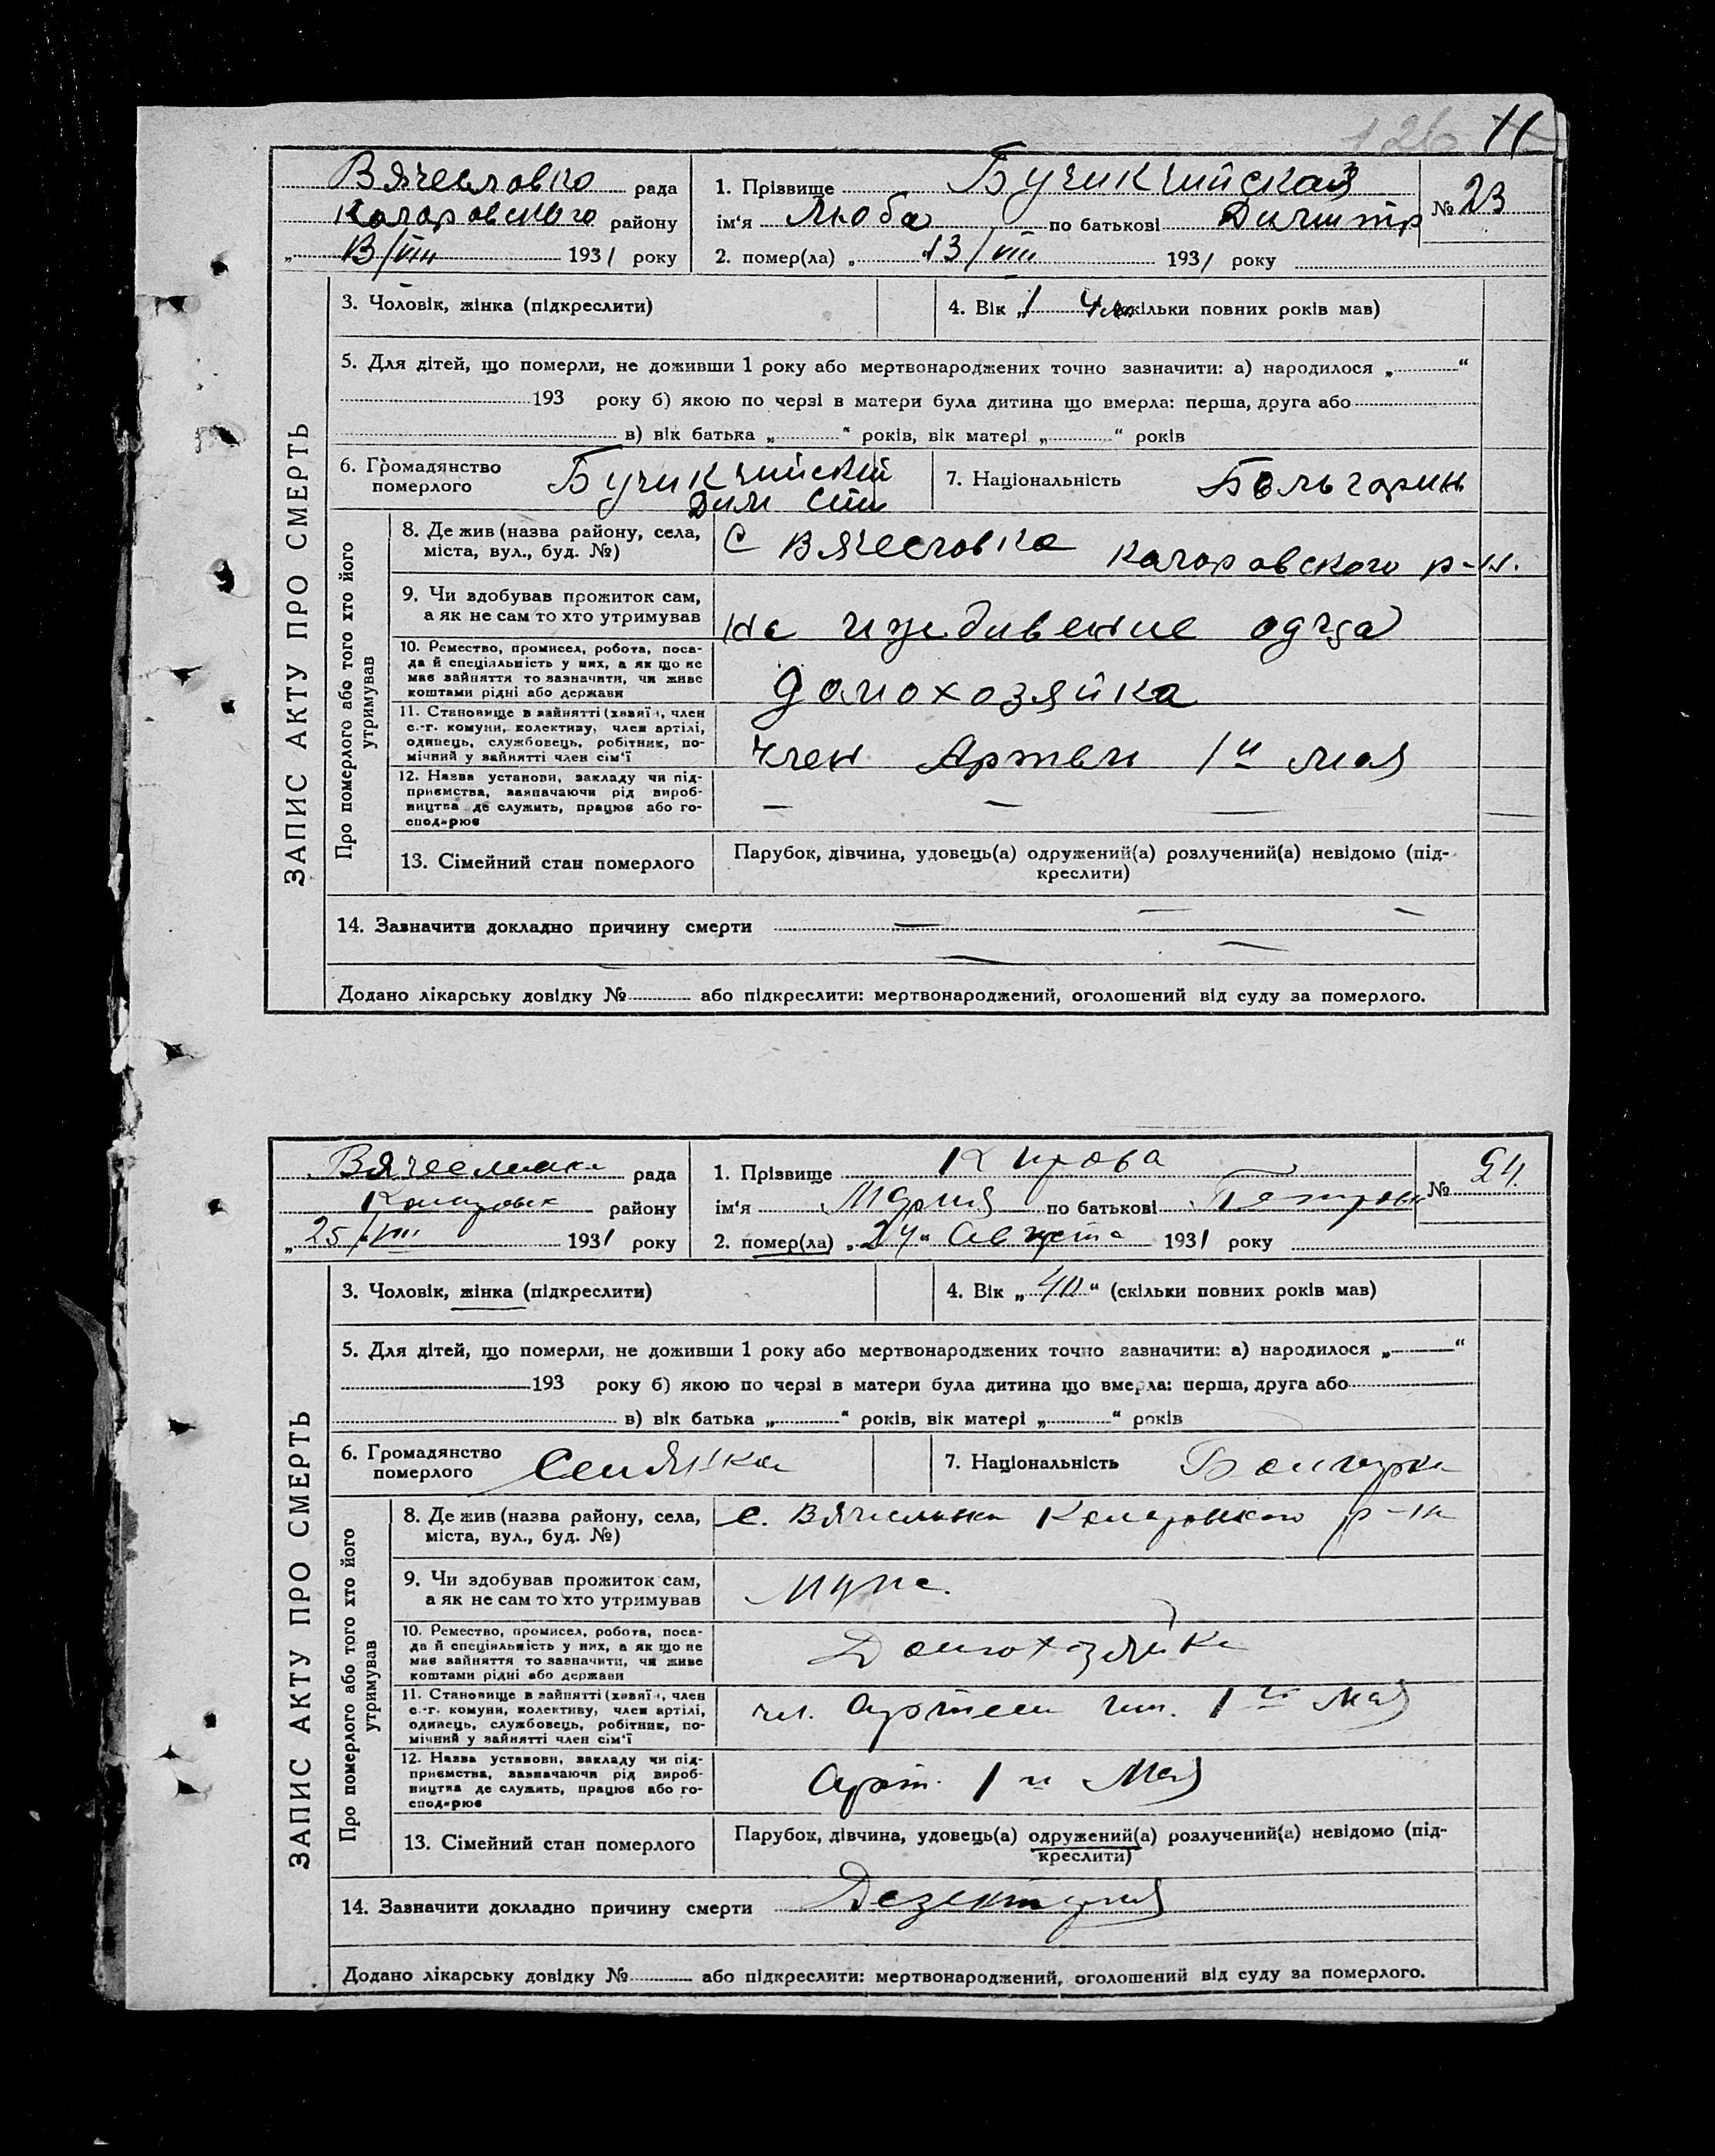 126 11
Вячесловка рада
Коларовского району
„ 13/VIII 1931 року
1. Прізвище Бучикчийская
ім‘я Люба по батькові Димитр
№ 23
2. помер(ла) „ 13/VIII 1931 року
3. Чоловік, жінка (підкреслити)
4. Вік „ 1 скільки повних років мав)
5. Для дітей, що померли, не доживши 1 року або мертвонароджених точно зазначити: а) народилося „ “
193 року б) якою по черзі в матери була дитина що вмерла: перша, друга або
в) вік батька „ “ років, вік матері „ “ років
6. Громадянство
померлого
Бучикчийский
Дим
7. Національність Больгарин
ЗАПИС АКТУ ПРО СМЕРТЬ
Про померлого або того хто його
утримував
8. Де жив (назва району, села,
міста, вул., буд. №)
С Вячесловка Коларовского р-н.
9. Чи здобував прожиток сам,
а як не сам то хто утримував
на иждивение
10. Ремество, промисел, робота, поса-
да й спеціяльність у них, а як що не
має зайняття то зазначити, чи живе
коштами рідні або держави
домохозяйка
11. Становище в зайнятті (хазяїн, член
с.-г. комуни, колективу, член артілі,
одинець, службовець, робітник, по-
мічний у зайнятті член сім‘ї
член Артели 1й мая
12. Назва установи, закладу чи під-
приємства, зазначаючи рід вироб-
ництва де служить, працює або го-
сподарює
— — —
13. Сімейний стан померлого
Парубок, дівчина, удовець(а) одружений(а) розлучений(а) невідомо (під-
креслити)
14. Зазначити докладно причину смерти —
Додано лікарську довідку № або підкреслити: мертвонароджений, оголошений від суду за померлого.
Вячесловка рада
Коларовск району
„ 25/VIII 1931 року
1. Прізвище Кирова
ім‘я Мария по батькові Петровн
№ 24.
2. помер(ла) „ 24 “ Августа 1931 року
3. Чоловік, жінка (підкреслити)
4. Вік „ 40 “ (скільки повних років мав)
5. Для дітей, що померли, не доживши 1 року або мертвонароджених точно зазначити: а) народилося „ “
193 року б) якою по черзі в матери була дитина що вмерла: перша, друга або
в) вік батька „ “ років, вік матері „ “ років
6. Громадянство
померлого
Селянка
7. Національність Болгарка
ЗАПИС АКТУ ПРО СМЕРТЬ
Про померлого або того хто його
утримував
8. Де жив (назва району, села,
міста, вул., буд. №)
с. Вячесловка Коларовского р-на
9. Чи здобував прожиток сам,
а як не сам то хто утримував
Муж.
10. Ремество, промисел, робота, поса-
да й спеціяльність у них, а як що не
має зайняття то зазначити, чи живе
коштами рідні або держави
Домохозяйка
11. Становище в зайнятті (хазяїн, член
с.-г. комуни, колективу, член артілі,
одинець, службовець, робітник, по-
мічний у зайнятті член сім‘ї
чл. артели им. 1го Мая
12. Назва установи, закладу чи під-
приємства, зазначаючи рід вироб-
ництва де служить, працює або го-
сподарює
Арт. 1 и Мая
13. Сімейний стан померлого
Парубок, дівчина, удовець(а) одружений(а) розлучений(а) невідомо (під-
креслити)
14. Зазначити докладно причину смерти Дезентерия
Додано лікарську довідку № або підкреслити: мертвонароджений, оголошений від суду за померлого.